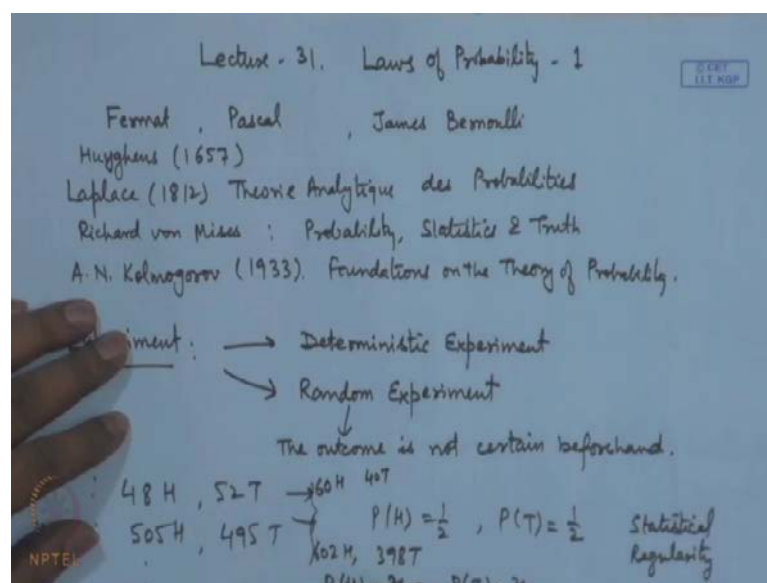 Lecture - 31. Laws of Probability - 1
© CET
I.I.T. KGP
Fermat , Pascal , James Bernoulli
Huyghens (1657)
Laplace (1812) Theorie Analytique des Probabilities
Richard von Mises : Probability, Statistics & Truth
A. N. Kolmogorov (1933). Foundations on the Theory of Probability.
iment : → Deterministic Experiment
→ Random Experiment
↓
The outcome is not certain beforehand.
48 H , 52 T → 60 H 40T
505 H , 495 T P(H) = 1/2 , P(T) = 1/2 Statistical
602 H, 398T Regularity
NPTEL